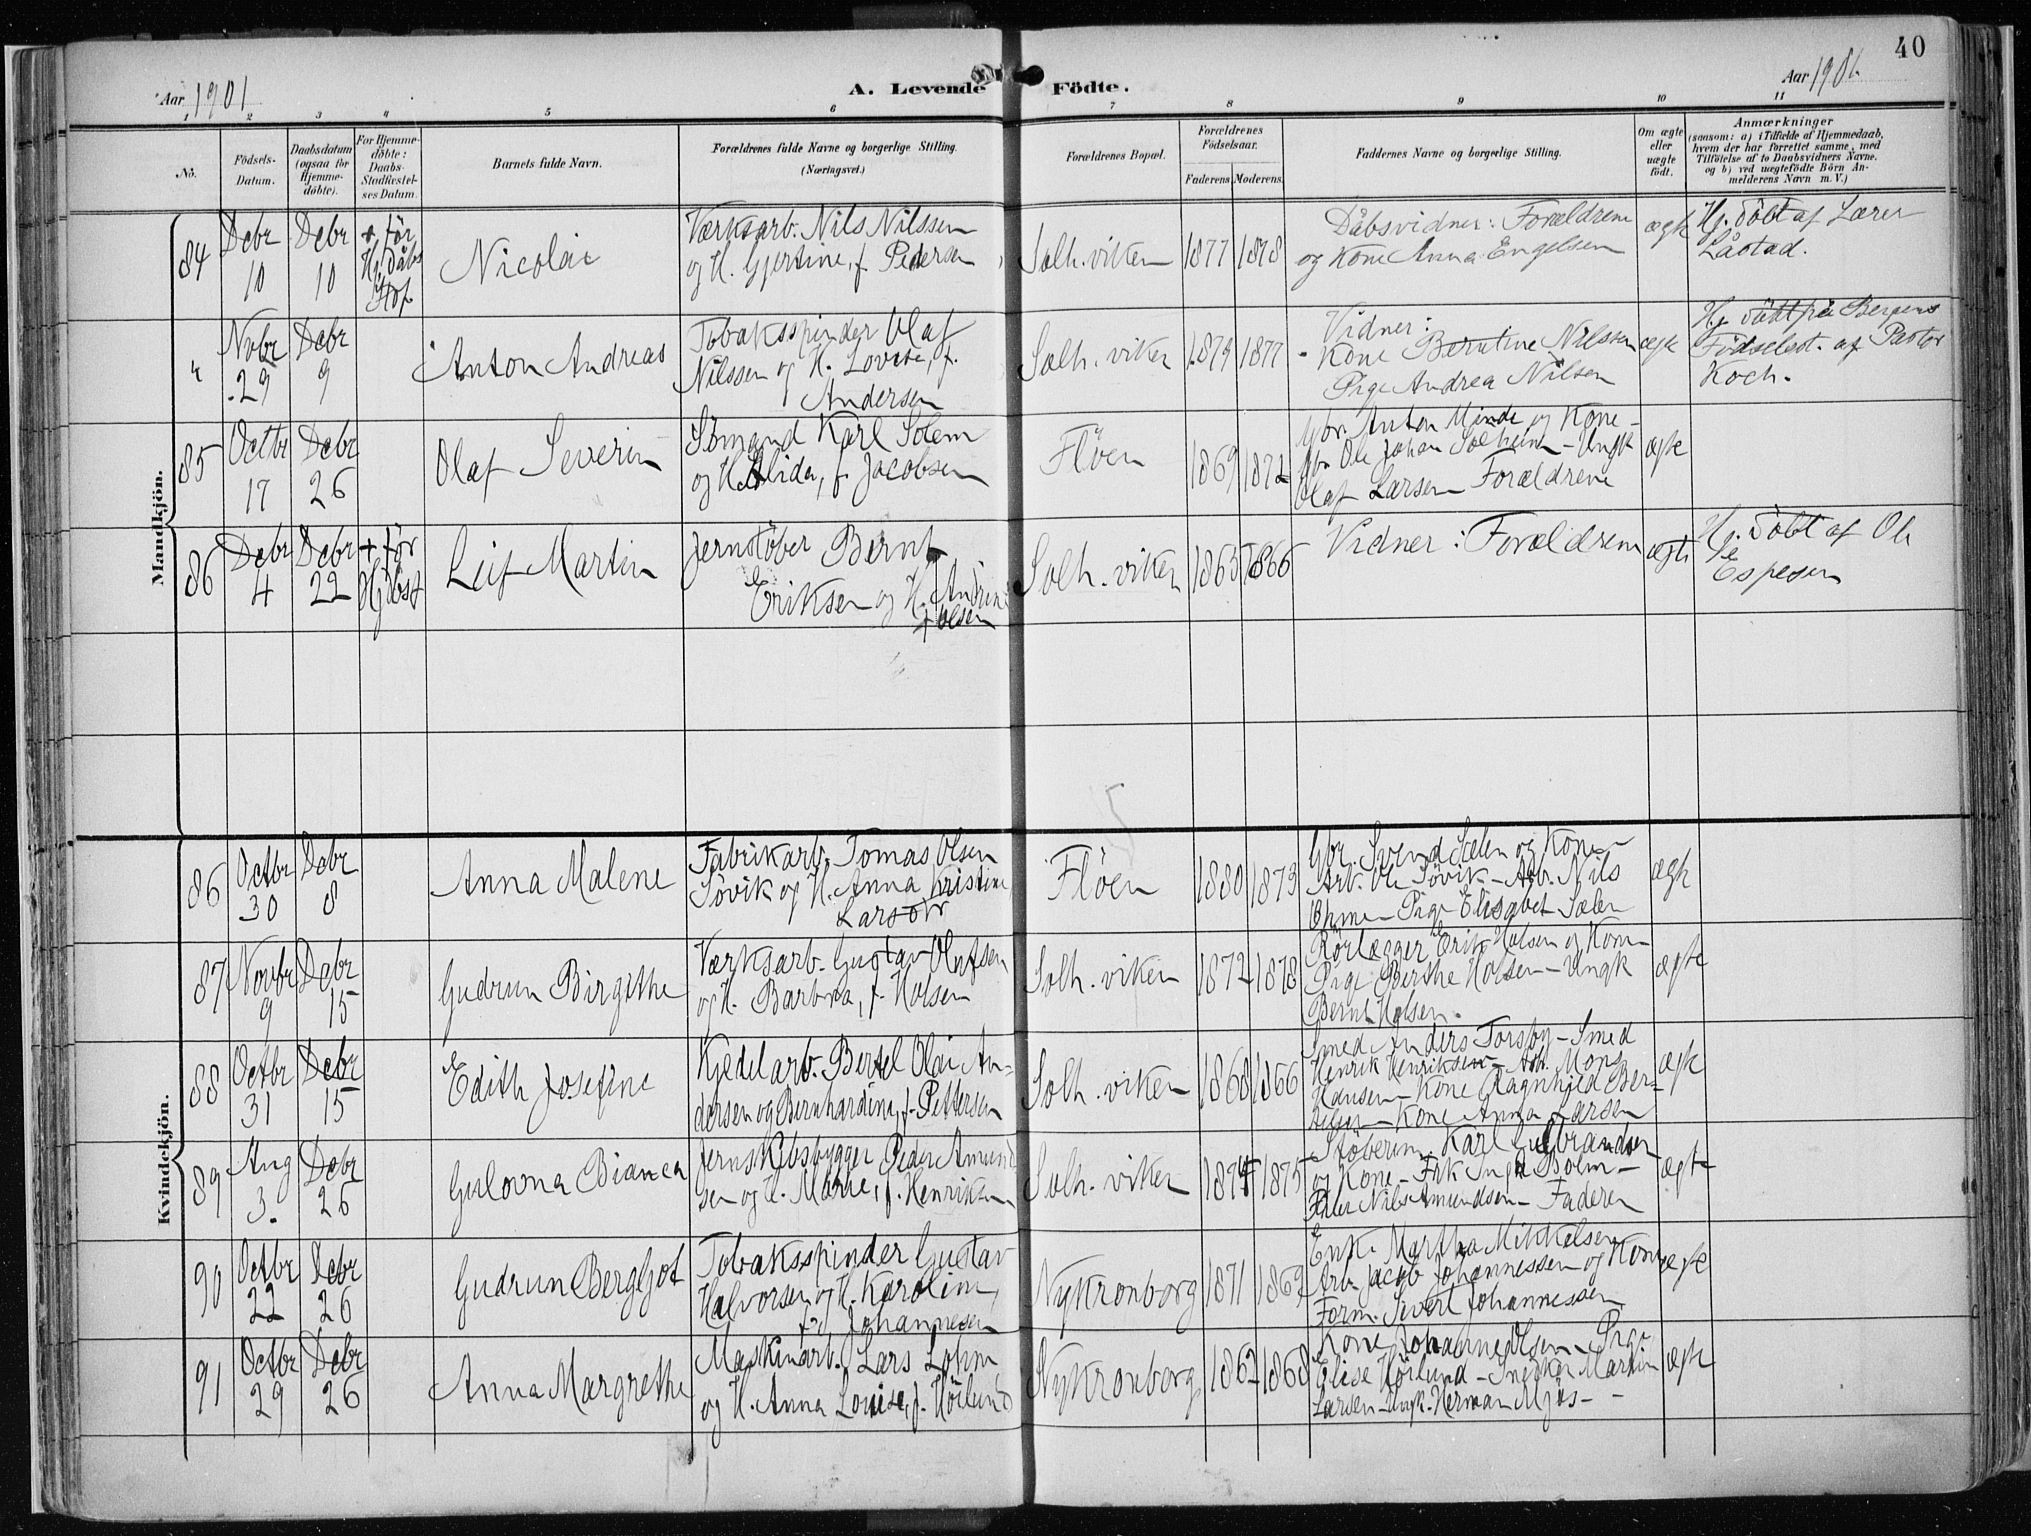 40
Aar 1901
A. Levende Födte.
Aar 1901.
1 2 3 4 5 6 7 8 9 10 11
No.
Födsels-
Datum.
Daabsdatum
(ogsaa for
Hjemme-
döbte).
For Hjemme-
döbte:
Daabs-
Stadfæstel-
ses Datum.
Barnets fulde Navn.
Forældrenes fulde Navne og borgerlige Stilling.
(Næringsvei.)
Forældrenes Bopæl.
Forældrenes
Födselsaar.
Faderens. Moderens.
Faddernes Navne og borgerlige Stilling.
Om ægte
eller
uægte
födt.
Anmærkninger
(saasom: a) i Tilfælde af Hjemmedaab,
hvem der har forrettet samme, med
Tilföielse af to Daabsvidners Navne,
og b) ved uægtefödte Börn An-
melderens Navn m. V.)
Mandkjön.
84
Decbr
10
Decbr
10
+ för
Hj. dåbs
Stdf.
Nicolai
Værksarb. Nils Nilssen
og H. Gjertine, f. Pedersen
Solh.viken
1877
1878
Dåbsvidner: Forældrene
og Kone Anna Engelsen
ægte
Hj. döbt af Lærer
Låstad.
"
Novbr
29
Decbr
9
Anton Andreas
Tobaksspinder Olaf
Nilssen og H. Lovise, f.
Andersen
Solh.viken
1879
1877
Vidner:
Kone Berntine Nilssen
Pige Andrea Nilsen
ægte
Hj. döbt på Bergens
Födselsst. af Pastor
Koch.
85
Octbr
17
Decbr
26
Olaf Severin
Sömand Karl Solem
og H. Alida, f. Jacobsen
Flöen
1869
1872
Gbr. Anton Minde og Kone -
Gbr. Ole Johan Solheim - Ungk
Olaf Larsen Forældrene
ægte
86
Decbr
4
Decbr
22
+ för
Hj.dbst
Leif Martin
Jernstöber Bernt
Eriksen og H. Andrine
f. Olsen
Solh.viken
1865
1866
Vidner: Forældrene
ægte
Hj. döbt af Ole
Espesen
Kvindekjön.
86
Octbr
30
Decbr
8
Anna Malene
Fabrikarb. Tomas Olsen
Sövik og H. Anna Kristine
Larsdtr
Flöen
1880
1873
Gbr. Svend Sælen og Kone -
Arb. Ole Sövik - Arb. Nils
Ohme - Pige Elisabet Sælen
ægte
87
Novbr
9
Decbr
15
Gudrun Birgithe
Værksarb. Gustav Olafsen
og H. Barbra, f. Holsen
Solh.viken
1872
1878
Rörlægger Erik Holsen og Kone -
Pige Berthe Holsen - Ungk
Bernt Holsen.
ægte
88
Octbr
31
Decbr
15
Edith Josefine
Kjedelarb. Bertel Olai An-
dersen og Bernhardine, f. Pettersen
Solh.viken
1868
1866
Smed Anders Torsby - Smed
Henrik Henriksen - Arb. Mons
Hansen - Kone Ragnhjed Ber-
- Kone Anna Larsen
ægte
89
Aug
3.
Decbr
26
Gulovna Bianca
Jernskibsbygger Peder Amund
sen og H. Marie, f. Henriksen
Solh.viken
1874
1875
Stöberim. Karl Gulbrandsen
og Kone - Frk Inga Bolm -
Nils Amundsen - Faderen
ægte
90
Octbr
22
Decbr
26
Gudrun Bergljot
Tobaksspinder Gustav
Halvorsen og H. Karoline,
f. Johannesen
Nykronborg
1871
1869
Enke Martha Mikkelsen
Arb. Jacob Johannessen og Kone
Form. Sivert Johannessen
ægte
91
Octbr
29
Decbr
26
Anna Margrethe
Maskinarb. Lars Lohm
og H. Anna Louise, f. Hörlund
Nykronborg
1862
1868
Kone Johanne Olsen - Pige
Elise Hörlund - Snedker Martin
Larsen - Ungk. Herman Mjös -
ægte